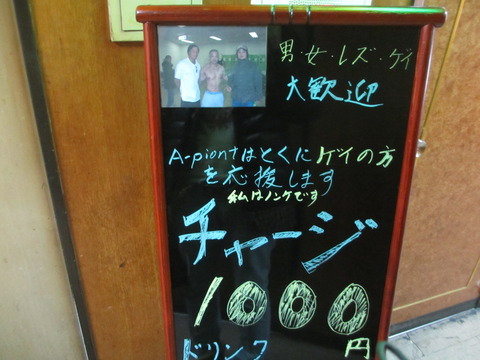 男・女・レズ・ゲイ
大歓迎
A-piontはとくにゲイの方
を応援します
私はノンケです
チャージ
1000
ドリンク 円